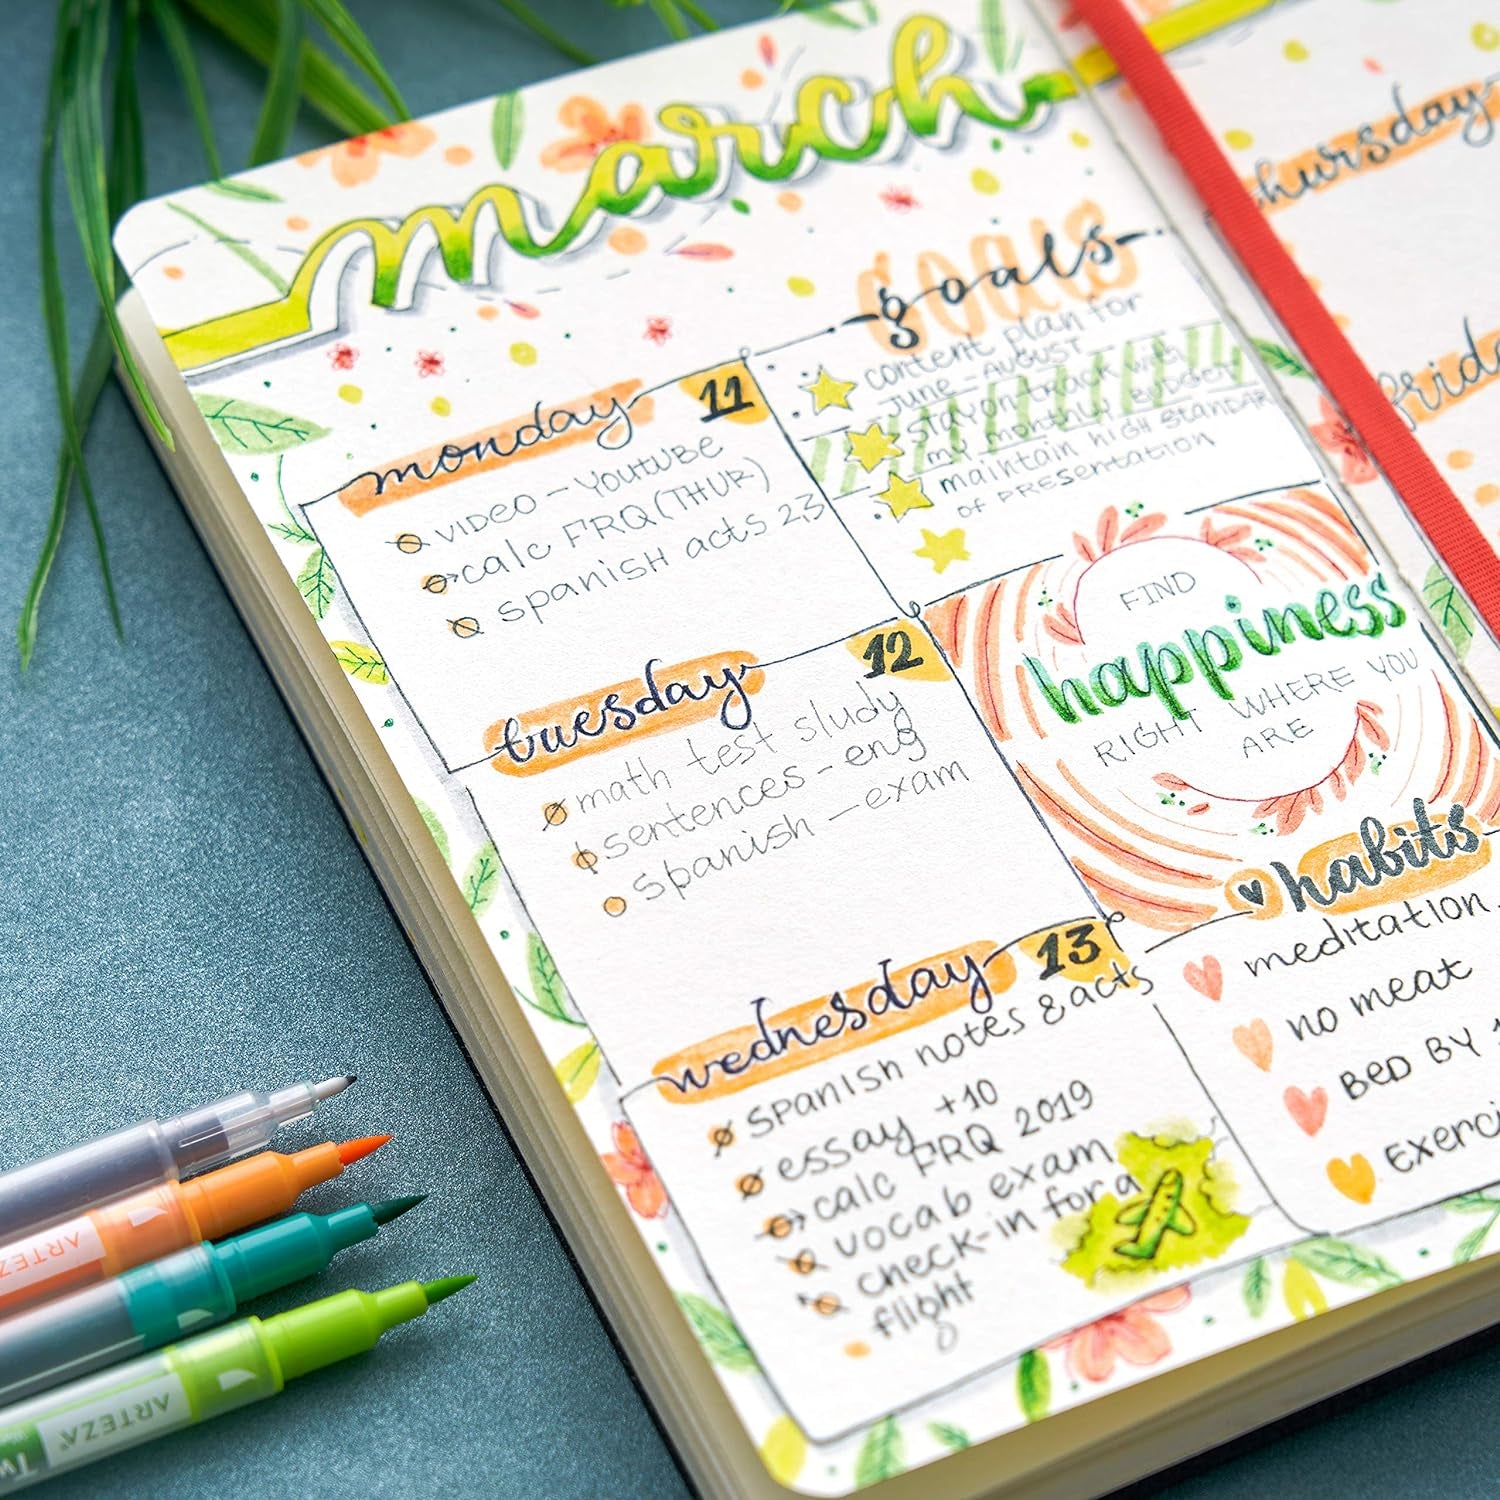 march
monday 11
video - YouTube
calc FRQ (THUR)
spanish acts 2,3
tuesday 12
math test study
sentences - eng
spanish - exam
wednesday 13
spanish notes & acts
essay +10
calc FRQ 2019
vocab exam
check-in for a
flight
goals
goals
content plan for
June - AUGUST
stay on track with
my monthly BUDGET
maintain high STANDAR
of PRESENTATION
FIND
happiness
RIGHT WHERE YOU
ARE
habits
meditation
no meat
BED BY
EXERCI
thursday
frida
ARTEZA
ARTEZA
Tw